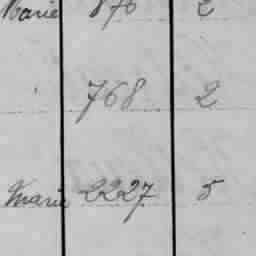 Marie 876 2
768 2
Marie 2227 5